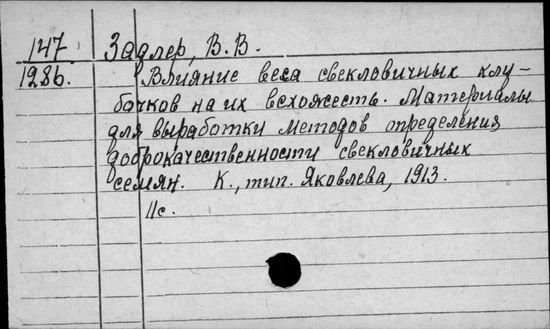 147 Задлер, В.В.
1286. Влияние веса свекловичных клу-
бочков на их всхожесть. Материалы
для выработки методов определения
доброкачественности свекловичных
семян. К., тип. Яковлева, 1913.
11с.